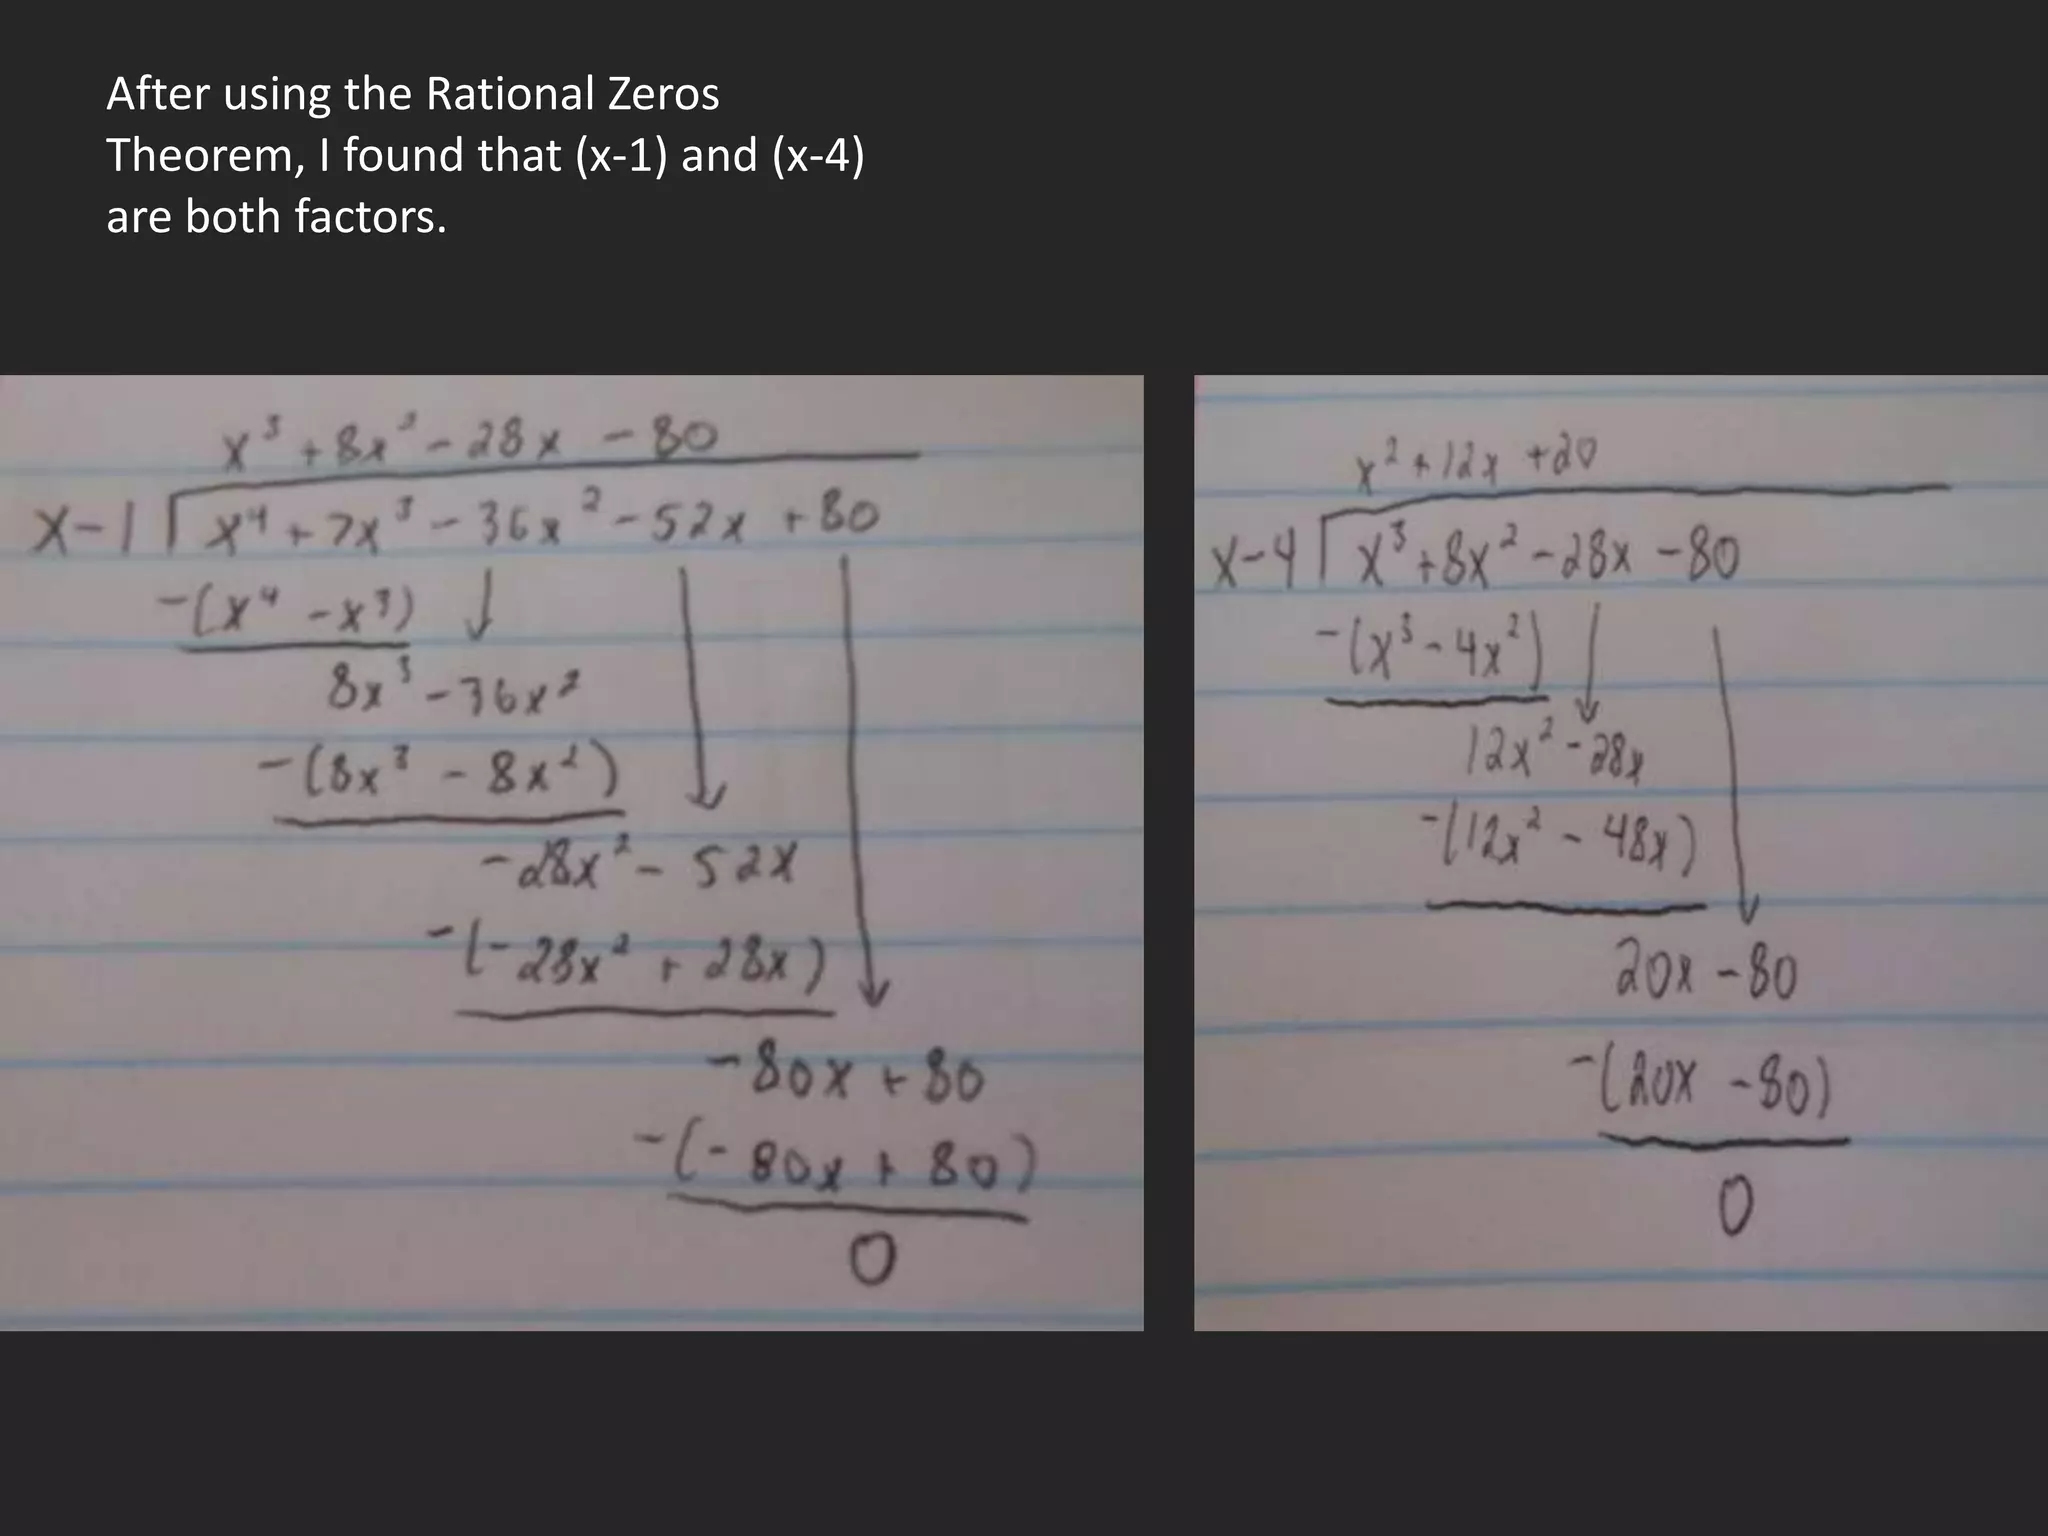 After using the Rational Zeros
Theorem, I found that (x-1) and (x-4)
are both factors.
x³ + 8x² - 28x - 80
x-1 ) x⁴ + 7x³ - 36x² - 52x + 80
-(x⁴ - x³)
8x³ - 36x²
-(8x³ - 8x²)
-28x² - 52x
-(-28x² + 28x)
-80x + 80
-(-80x + 80)
0
x² + 12x + 20
x-4 ) x³ + 8x² - 28x - 80
-(x³ - 4x²)
12x² - 28x
-(12x² - 48x)
20x - 80
-(20x - 80)
0